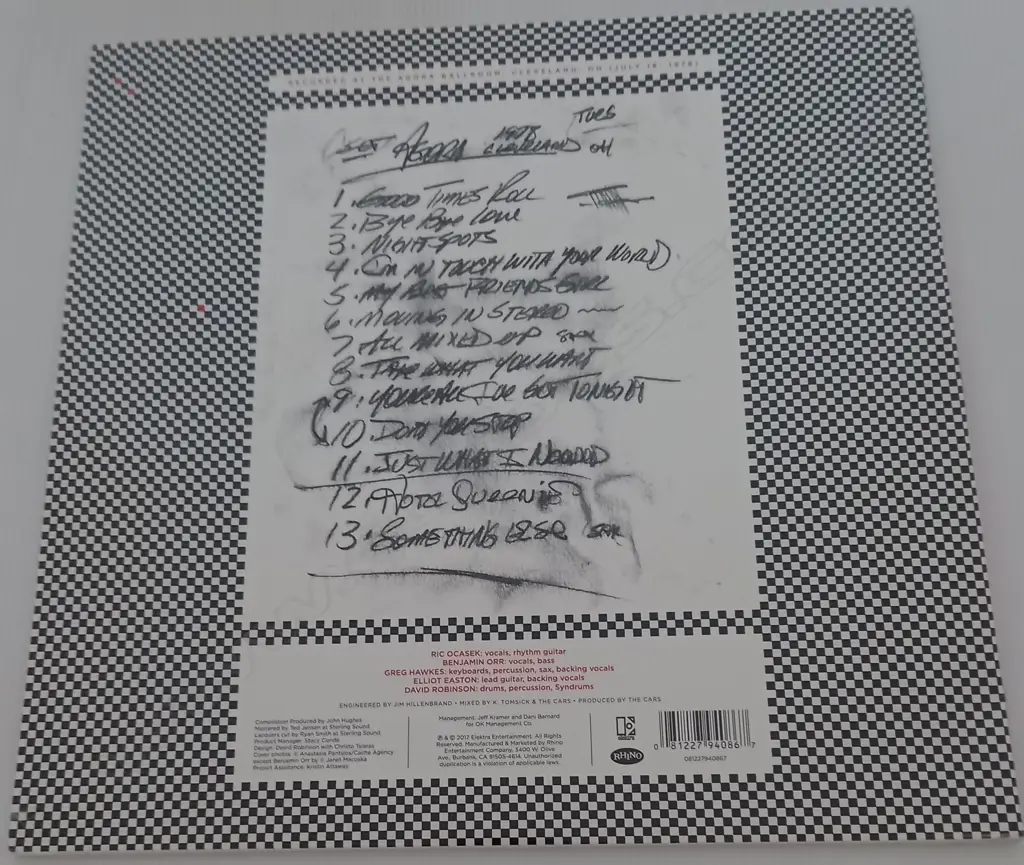 RECORDED AT THE AGORA BALLROOM, CLEVELAND, OH (JULY 18, 1978)
TUES
SET AGORA 1978 CLEVELAND OH
1. GOOD TIMES ROLL
2. BYE BYE LOVE
3. NIGHT SPOTS
4. I'M IN TOUCH WITH YOUR WORLD
5. MY BEST FRIENDS GIRL
6. MOVING IN STEREO
7. ALL MIXED UP SAX
8. TAKE WHAT YOU WANT
9. YOU'RE ALL I'VE GOT TONIGHT
10. DON'T YOU STOP
11. JUST WHAT I NEEDED
12 HOTEL QUEENIE
13. SOMETHING ELSE SAX
RIC OCASEK: vocals, rhythm guitar
BENJAMIN ORR: vocals, bass
GREG HAWKES: keyboards, percussion, sax, backing vocals
ELLIOT EASTON: lead guitar, backing vocals
DAVID ROBINSON: drums, percussion, Syndrums
ENGINEERED BY JIM HILLENBRAND • MIXED BY K. TOMSICK & THE CARS • PRODUCED BY THE CARS
Compilation Produced by John Hughes
Mastered by Ted Jensen at Sterling Sound
Lacquers cut by Ryan Smith at Sterling Sound
Product Manager: Stacy Conde
Design: David Robinson with Christo Tsiaras
Cover photos: © Anastasia Pantsios/Cache Agency
except Benjamin Orr by © Janet Macoska
Project Assistance: Kristin Attaway
Management: Jeff Kramer and Dani Barnard
for OK Management Co.
℗ & © 2017 Elektra Entertainment. All Rights
Reserved. Manufactured & Marketed by Rhino
Entertainment Company, 3400 W. Olive
Ave., Burbank, CA 91505-4614. Unauthorized
duplication is a violation of applicable laws.
RHINO
0 81227 94086 7
081227940867